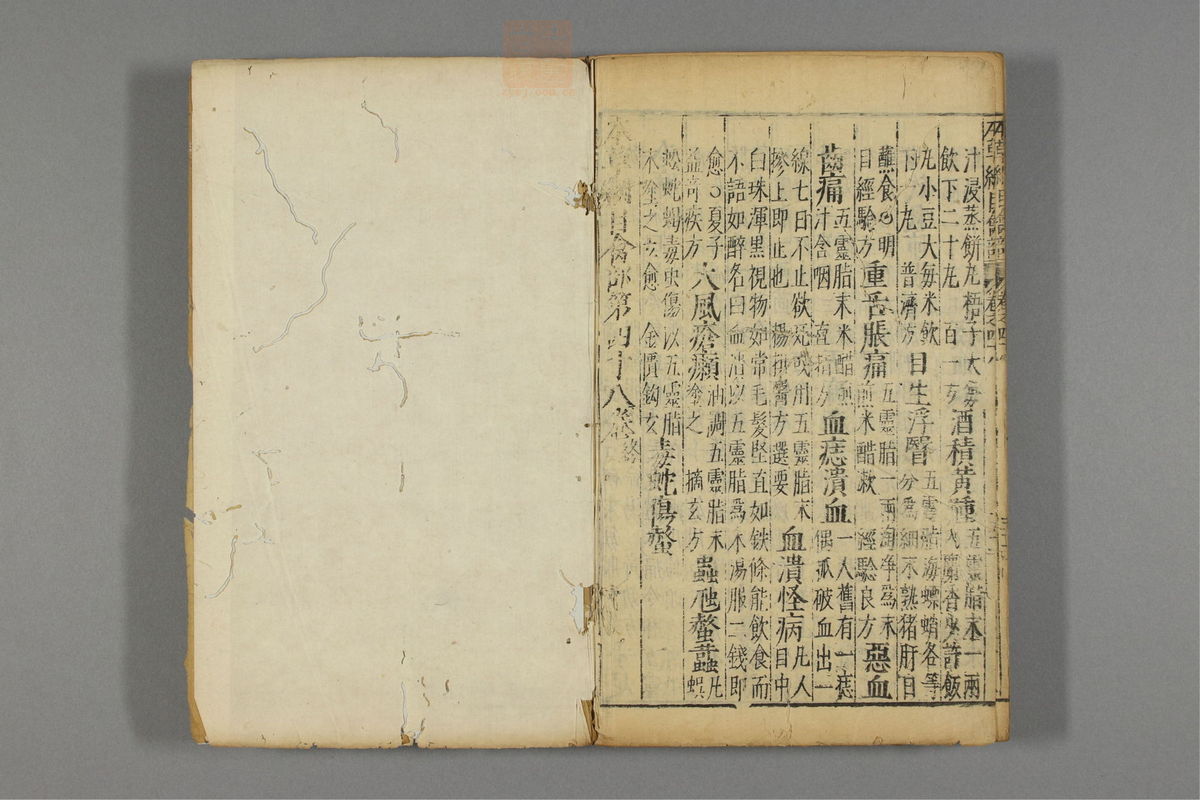 汁浸蒸餅丸梧子大每
飲下二十丸 百一方
酒積黃腫
五靈脂末一兩
入麝香少許飯
丸小豆大每米飲
下一丸 普濟方
目生浮瞖
五靈脂海螵蛸各等
分為細末熟猪肝日
蘸食○明
目經驗方
重舌脹痛
五靈脂一兩淘淨為末
煎米醋漱 經驗良方
惡血
齒痛
五靈脂末米醋煎
汁含咽 直指方
血痣潰血
一人舊有一痣
偶抓破血出一
線七日不止欲死或用五靈脂末
摻上即止也 楊拱醫方選要
血潰怪病
凡人
目中
白珠渾黑視物如常毛髮堅直如铁條能飲食而
不語如醉名曰血潰以五靈脂為末湯服二錢即
愈○夏子
益奇疾方
大風瘡癩
油調五靈脂末
塗之 摘玄方
蟲虺螫蠚
凡
蜈
蚣蛇蝎毒虫傷以五靈脂
末塗之立愈 金匱鈎玄
毒蛇傷螫
本草綱目禽部第四十八卷終